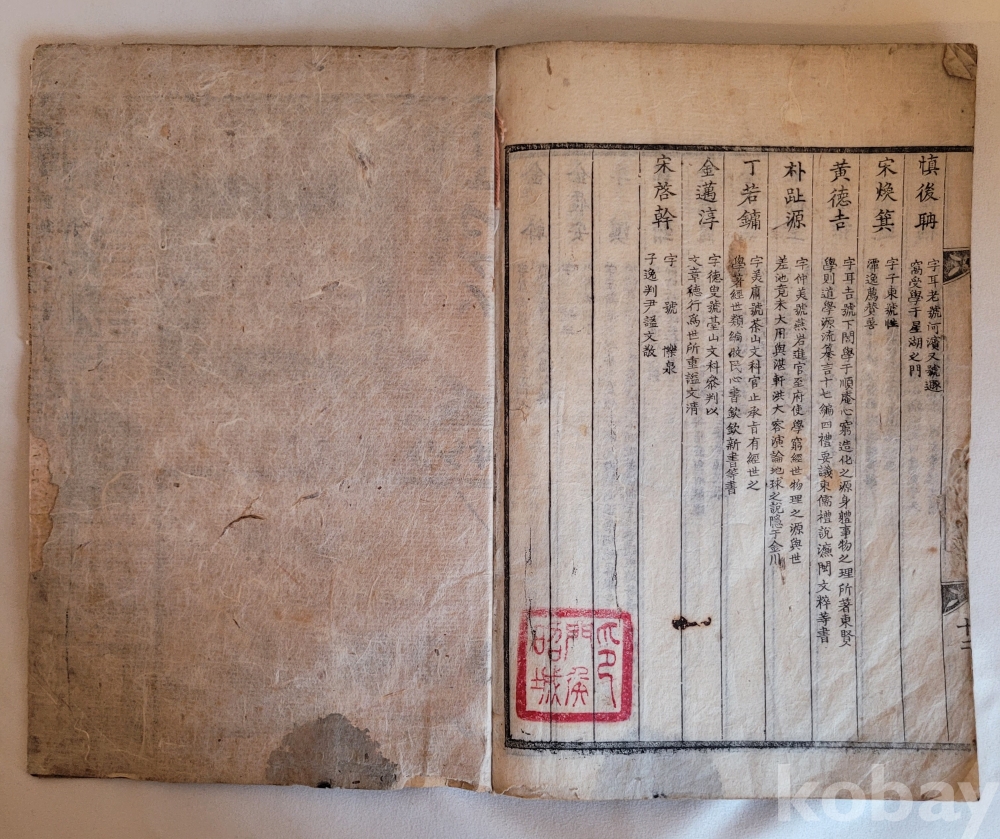 愼後聃
字耳老號河濱又號遯
窩受學于星湖之門
宋煥箕
字子東號性
潭逸薦贊善
黃德吉
字耳吉號下閭學于順庵心窮造化之源身軆事物之理所著東賢
學則道學源流纂言十七編四禮要議東儒禮說濂閩文粹等書
朴趾源
字仲美號燕岩進官至府使學窮經世物理之源與世
差池竟未大用與湛軒洪大容演論地球之說隐于金川
丁若鏞
字美庸號茶山文科官止承旨有經世之
學著經世類編牧民心書欽欽新書等書
金邁淳
字德叟號臺山文科叅判以
文章德行爲世所重謚文清
宋啓幹
字 號 櫟泉
子逸判尹謚文敬
十三
印
kobay